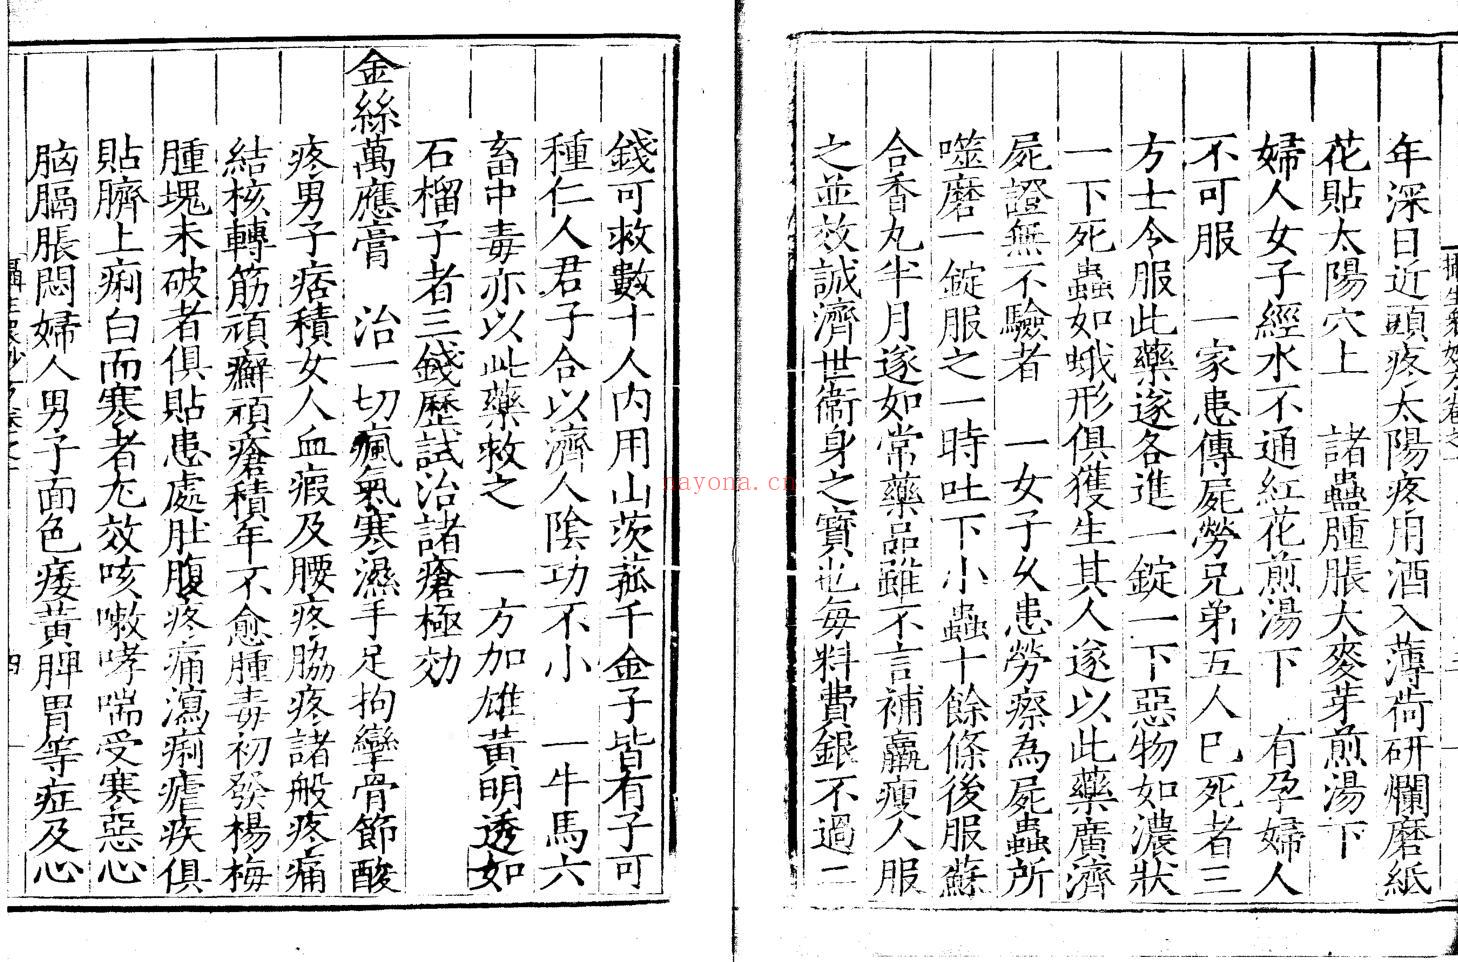 年深日近頭疼太陽疼用酒入薄荷研爛磨紙
花貼太陽穴上　諸蠱腫脹大麥芽煎湯下
婦人女子經水不通紅花煎湯下　有孕婦人
不可服　一家患傳屍勞兄弟五人巳死者三
方士令服此藥遂各進一錠一下惡物如濃狀
一下死蟲如蛾形俱獲生其人遂以此藥廣濟
屍證無不驗者　一女子久患勞瘵為屍蟲所
噬磨一錠服之一時吐下小蟲十餘條後服蘇
合香丸半月遂如常藥品雖不言補羸瘦人服
之並效誠濟世衛身之寶也每料費銀不過二
錢可救數十人內用山茨菰千金子皆有子可
種仁人君子合以濟人陰功不小　一牛馬六
畜中毒亦以此藥救之　一方加雄黃明透如
石榴子者三錢歷試治諸瘡極効
金絲萬應膏　治一切瘋氣寒濕手足拘攣骨節酸
疼男子痞積女人血瘕及腰疼脇疼諸般疼痛
結核轉筋頑癬頑瘡積年不愈腫毒初發楊梅
腫塊未破者俱貼患處肚腹疼痛瀉痢瘧疾俱
貼臍上痢白而寒者尤效咳嗽哮喘受寒惡心
脑膈脹悶婦人男子面色痿黃脾胃等症及心
四
nayona.cn